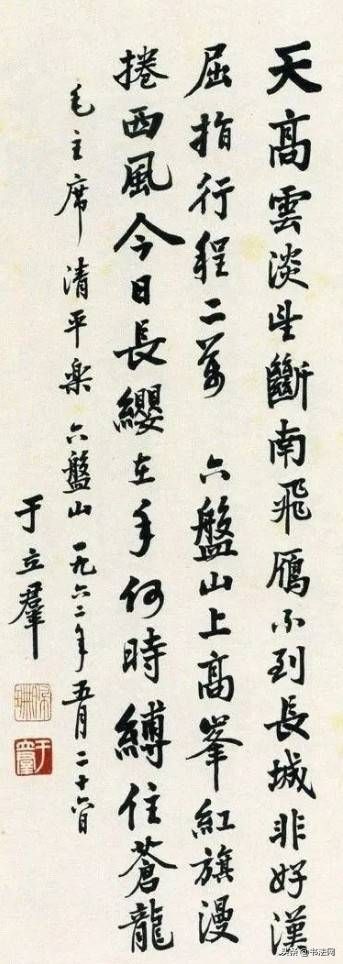 天髙雲淡望斷南飛鴈不到長城非好漢
屈指行程二萬 六盤山上髙峯紅旗漫
捲西風今日長纓在手何時縛住蒼龍
毛主席清平楽六盤山一九六二年五月二十六日
于立羣
于立羣
头条@书法网